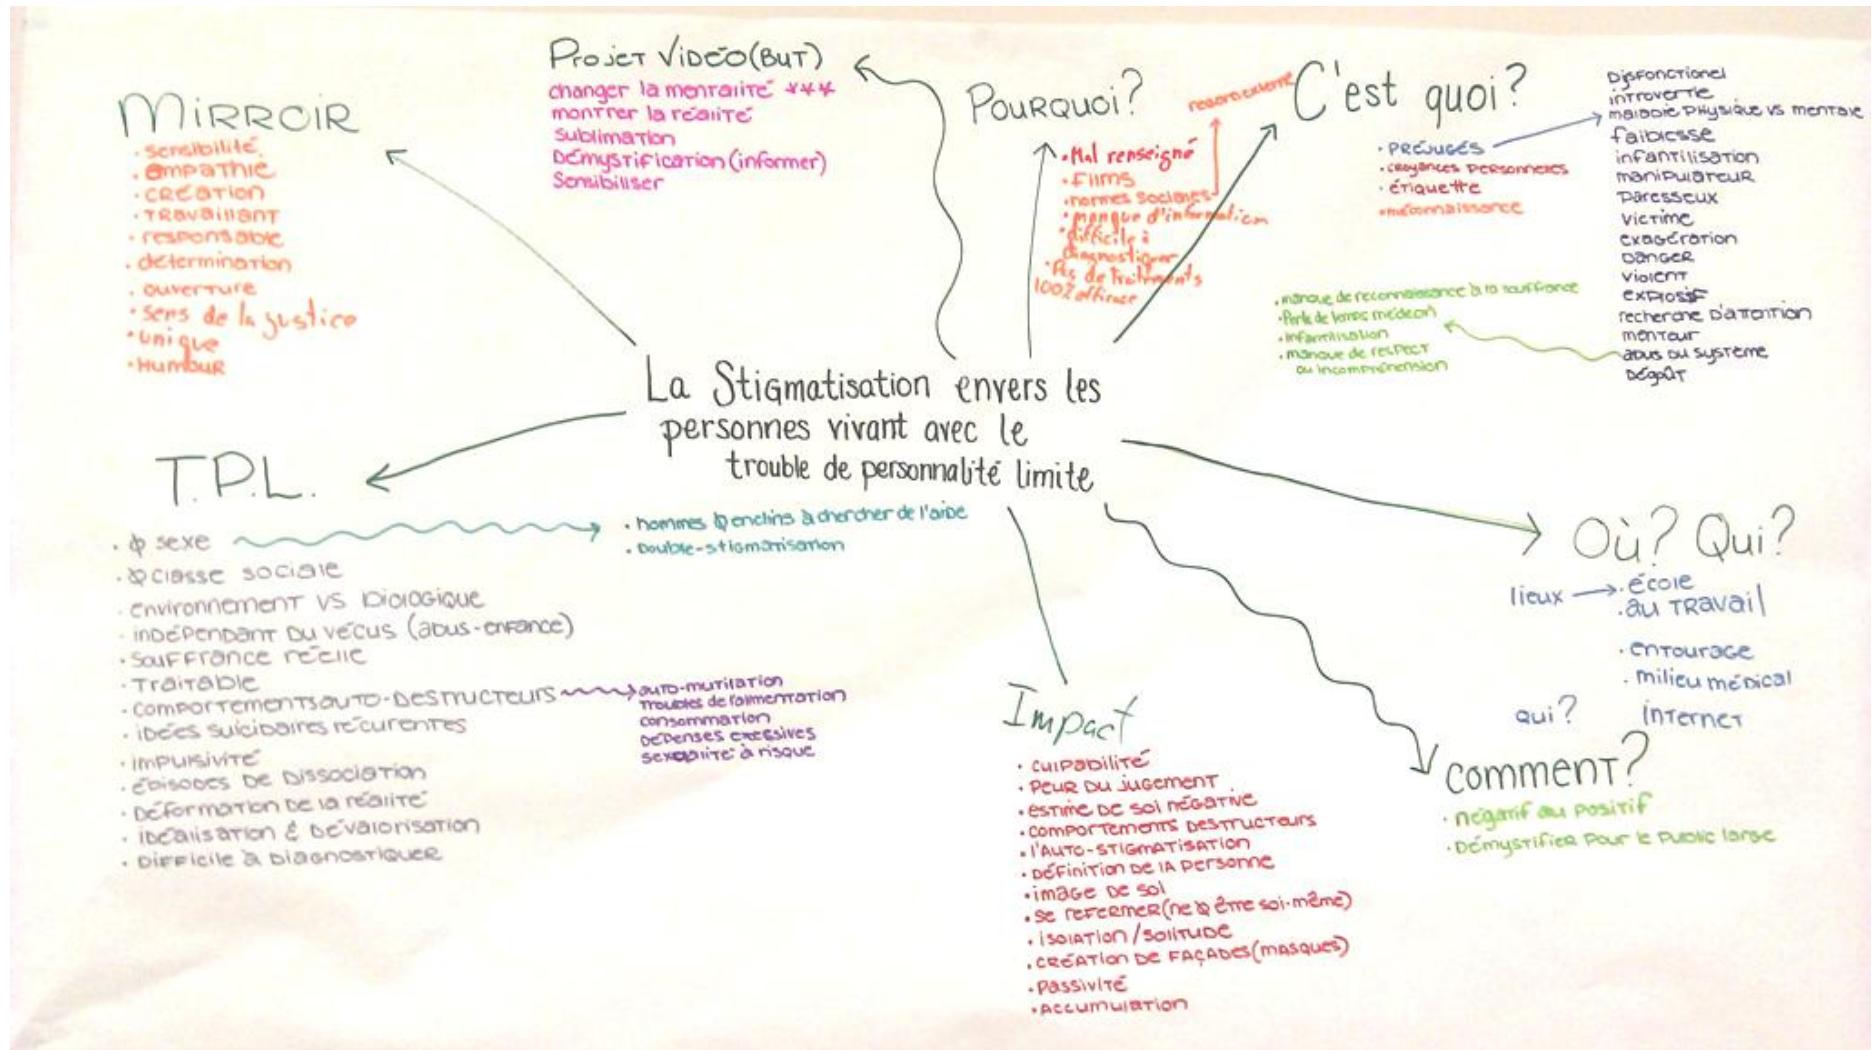 La Stigmatisation envers les
personnes vivant avec le
trouble de personnalité limite
MIRROIR
• sensibilité
• empathie
• création
• travaillant
• responsable
• détermination
• ouverture
• sens de la justice
• unique
• Humour
Projet Vidéo (BUT)
changer la mentalité ***
montrer la réalité
sublimation
Démystification (informer)
Sensibiliser
Pourquoi?
• Mal renseigné
• Films
• normes sociales
• manque d'information
• difficile à
diagnostiquer
• Pas de traitements
100% efficace
regard externe
C'est quoi?
• PRÉJUGÉS
• croyances personneles
• étiquette
• méconnaissance
Disfonctionel
introvertie
maladie physique vs mentale
faiblesse
infantilisation
manipulateur
paresseux
victime
exagération
danger
violent
explosif
recherche d'attention
menteur
abus du système
Dégoût
• manque de reconnaissance à la souffrance
• Perte de temps médecin
• infantilisation
• manque de respect
ou incompréhension
T.P.L.
• φ sexe
• φ classe sociale
• environnement vs biologique
• indépendant du vécus (abus-enfance)
• souffrance réelle
• Traitable
• comportements auto-destructeurs
• idées suicidaires récurentes
• impulsivité
• épisodes de dissociation
• Déformation de la réalité
• idéalisation & dévalorisation
• Difficile à diagnostiquer
• hommes φ enclins à chercher de l'aide
• Double-stigmatisation
auto-mutilation
Troubles de l'alimentation
consommation
Dépenses exessives
sexualité à risque
Impact
• culpabilité
• peur du jugement
• estime de soi négative
• comportements destructeurs
• l'auto-stigmatisation
• définition de la personne
• image de soi
• se refermer (ne φ être soi-même)
• isolation / solitude
• création de façades (masques)
• passivité
• Accumulation
Où? Qui?
lieux
• école
• au travail
• entourage
• milieu médical
qui?
internet
comment?
• négatif au positif
• Démystifier pour le public large